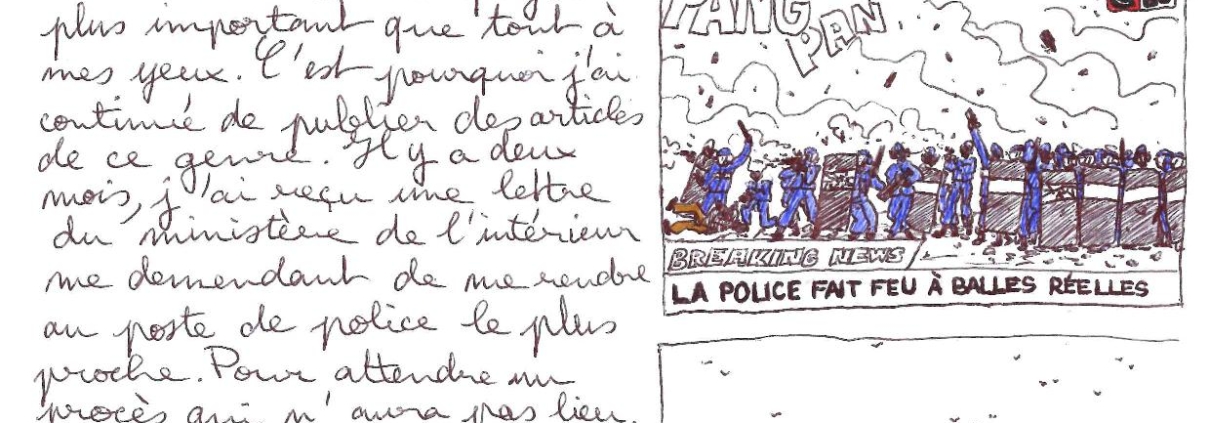 plus important que tout à
mes yeux. C'est pourquoi j'ai
continué de publier des articles
de ce genre. Il y a deux
mois, j'ai reçu une lettre
du ministère de l'intérieur
me demendant de me rendre
au poste de police le plus
proche. Pour attendre un
procès qui n'aura pas lieu.
PANG
PAN
BREAKING NEWS
LA POLICE FAIT FEU À BALLES RÉELLES